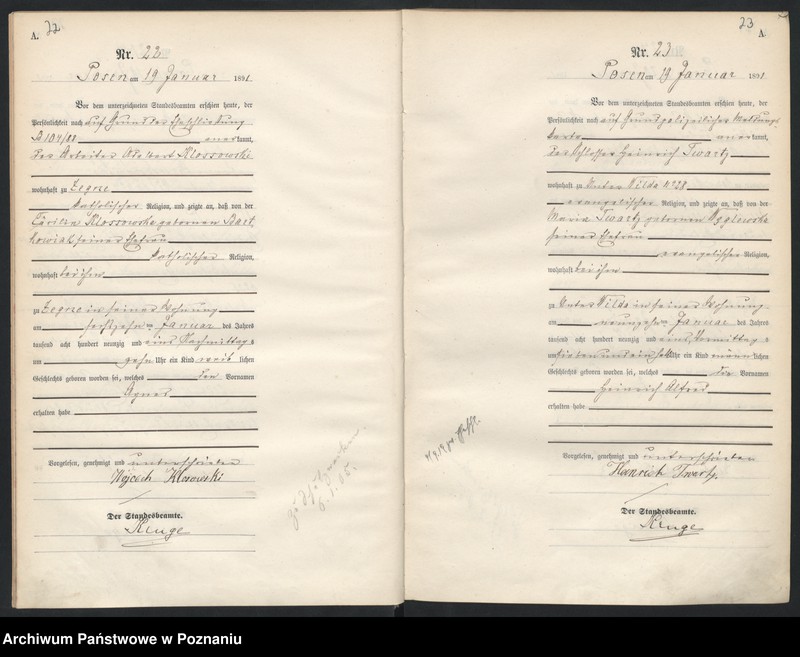 A. 22
Nr. 22
Posen am 19 Januar 1891
Vor dem unterzeichneten Standesbeamten erschien heute, der
Persönlichkeit nach auf Grund der Eheschließung
A 104/88 anerkannt,
der Arbeiter Adalbert Klossowski
wohnhaft zu Zegrze
katholischer Religion, und zeigte an, daß von der
Cäcilia Klossowska geborenen Bart
kowiak seiner Ehefrau
katholischer Religion,
wohnhaft bei ihm
zu Zegrze in seiner Wohnung
am sechszehnten Januar des Jahres
tausend acht hundert neunzig und eins Nachmittags
um zehn Uhr ein Kind weib lichen
Geschlechts geboren worden sei, welches den Vornamen
Agnes
erhalten habe
Vorgelesen, genehmigt und unterschrieben
Wojcech Klosowski
Der Standesbeamte.
Kluge
6.1.05.
23 A
Nr. 23
Posen am 19 Januar 1891
Vor dem unterzeichneten Standesbeamten erschien heute, der
Persönlichkeit nach auf Grund polizeilicher Meldungs
karte anerkannt,
der Schlosser Heinrich Twartz
wohnhaft zu Unter Wilda № 28
evangelischer Religion, und zeigte an, daß von der
Maria Twartz geborenen
seiner Ehefrau
evangelischer Religion,
wohnhaft bei ihm
zu Unter Wilda in seiner Wohnung
am neunzehn Januar des Jahres
tausend acht hundert neunzig und eins, Vormittags
um sieben und ein halb Uhr ein Kind männ lichen
Geschlechts geboren worden sei, welches die Vornamen
Heinrich Alfred
erhalten habe
Vorgelesen, genehmigt und unterschrieben
Heinrich Twartz.
Der Standesbeamte.
Kluge
Archiwum Państwowe w Poznaniu